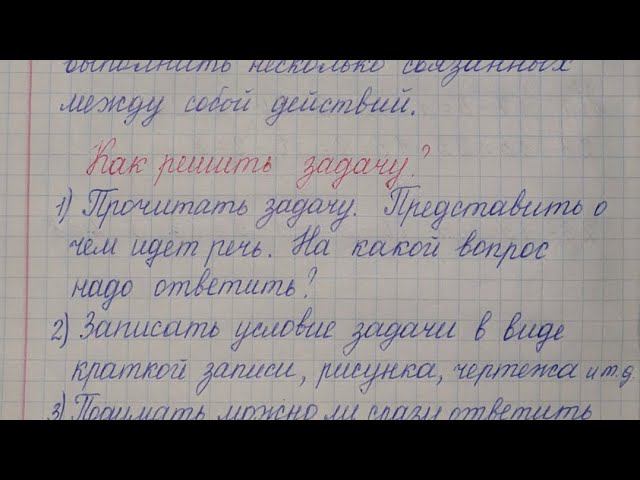 выполнить несколько связанных
между собой действий.
Как решить задачу?
1) Прочитать задачу. Представить о
чём идёт речь. На какой вопрос
надо ответить?
2) Записать условие задачи в виде
краткой записи, рисунка, чертежа и т.д
3) Подумать можно ли сразу ответить